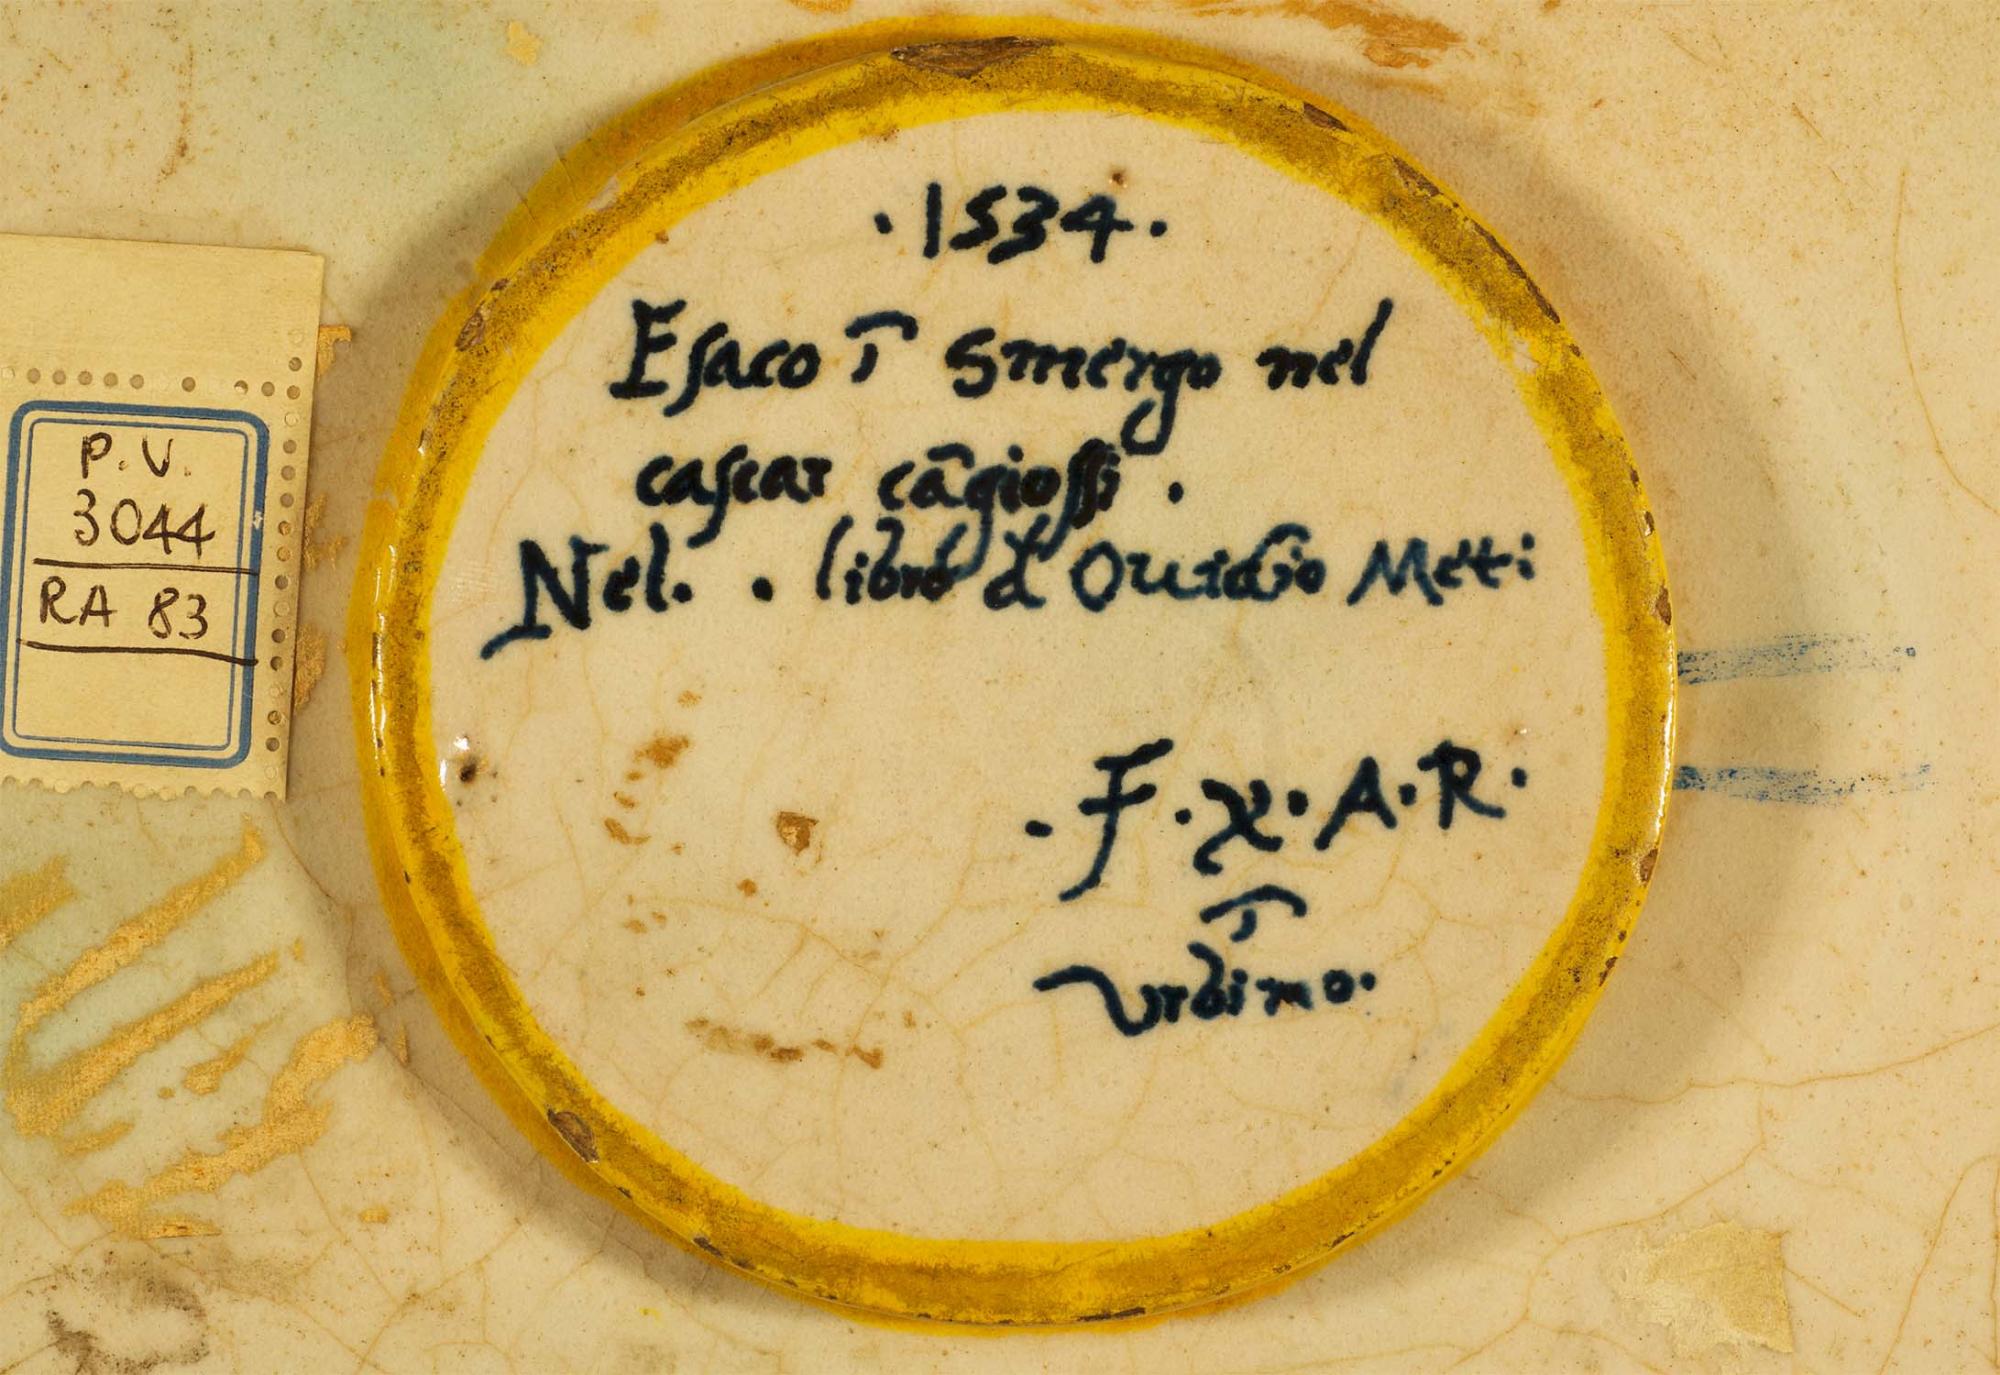 P. V.
3044
RA 83
·1534·
Eſaco ī Smergo nel
caſcar cāgioſſi .
Nel. . libro d Ouidio Met:
·F·X·A·R·
ī
Vrbino·